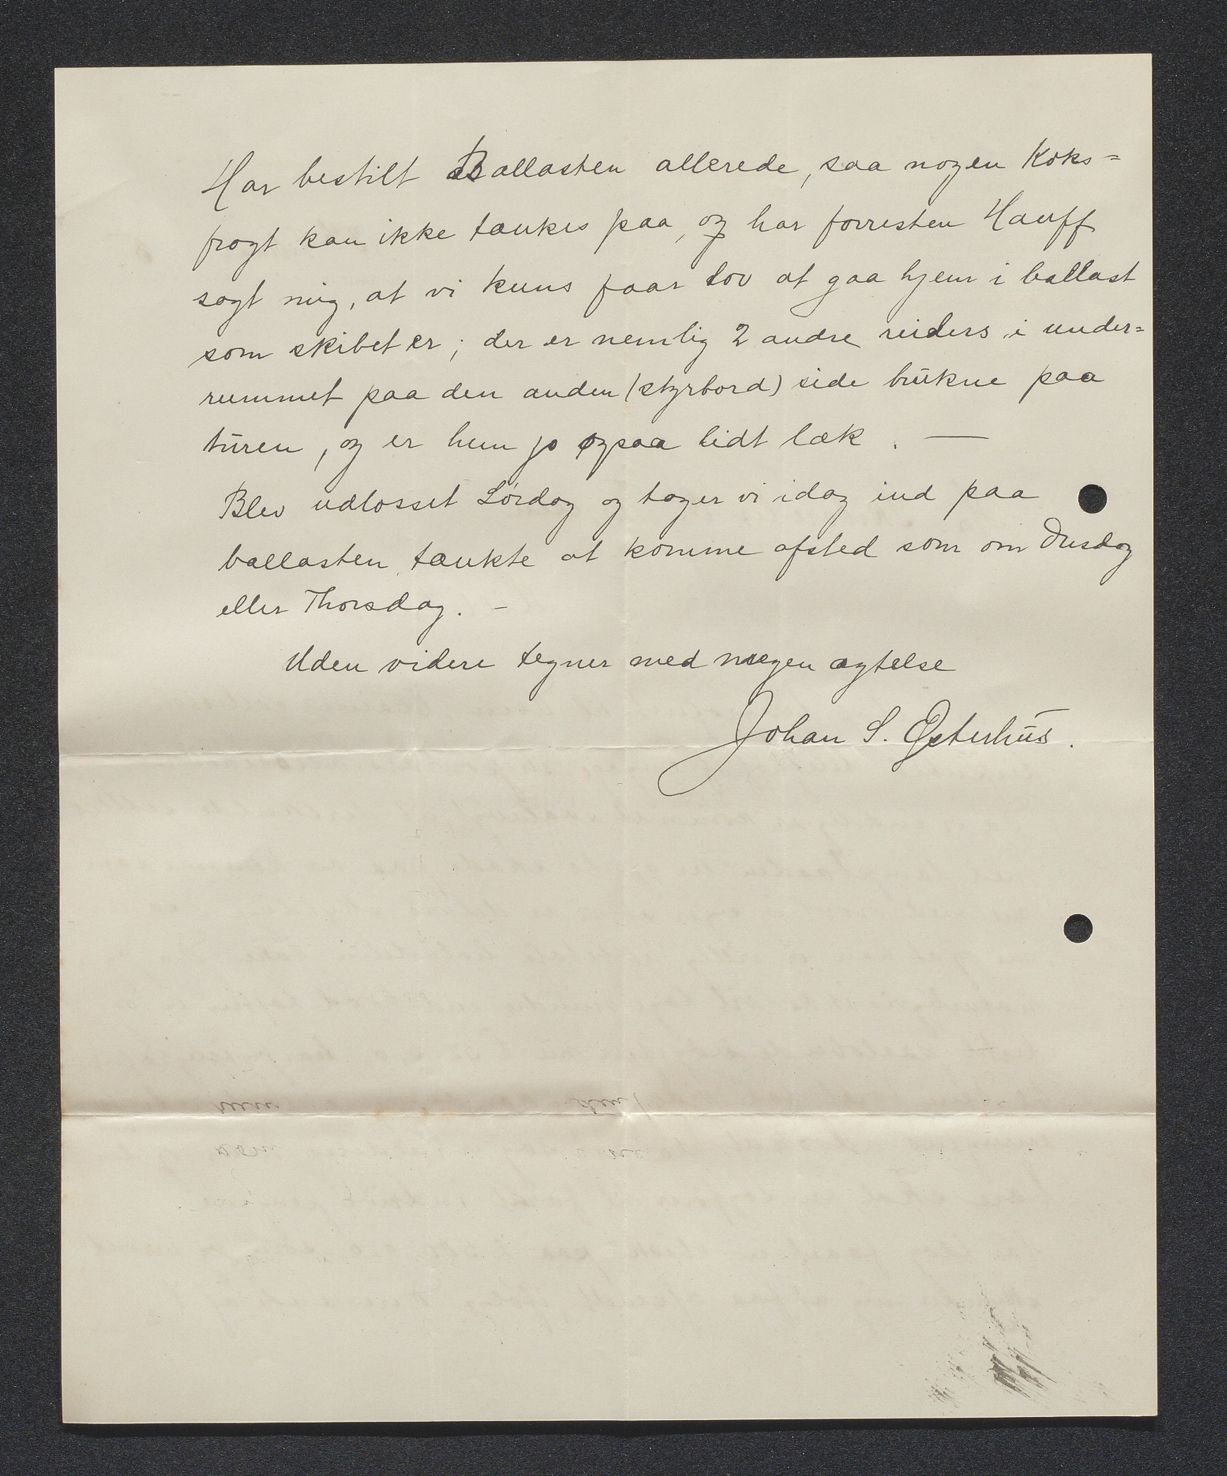 Har bestilt Ballasten allerede, saa nogen Koks=
fragt kan ikke tænkes paa, og har forresten Hauff
sagt mig, at vi kuns faar lov at gaa hjem i ballast
som skibet er; der er nemlig 2 andre reiders i under=
rummet paa den anden (styrbord) side brukne paa
turen, og er hun jo ogsaa lidt læk. —
Blev udlosset Lördag og tager vi idag ind paa
ballasten, tænkte at komme afsted som om Onsdag
eller Thorsdag. –
Uden videre tegner med megen agtelse
Johan S. Østerhus.